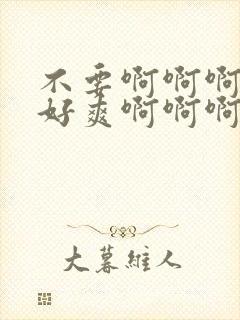 不要啊啊啊
好爽啊啊啊
大暮維人